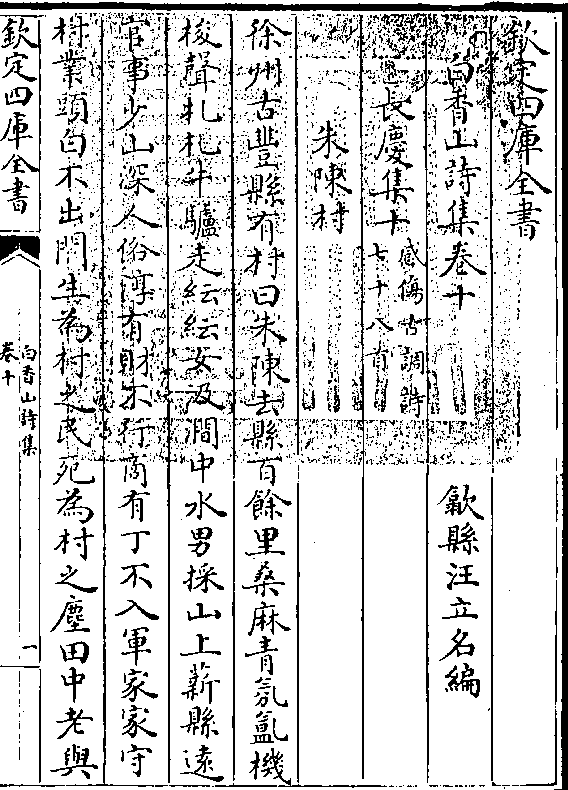 欽定四庫全書
白香山詩集卷十
歙縣汪立名編
長慶集十
感傷古調詩
七十八首
朱陳村
徐州古豐縣有村曰朱陳去縣百餘里桑麻青氛氲機
梭聲札札牛驢走紜紜女汲澗中水男採山上薪縣遠
官事少山深人俗淳有財不行商有丁不入軍家家守
村業頭白不出門生為村之民死為村之塵田中老與
欽定四庫全書
白香山詩集
卷十
一